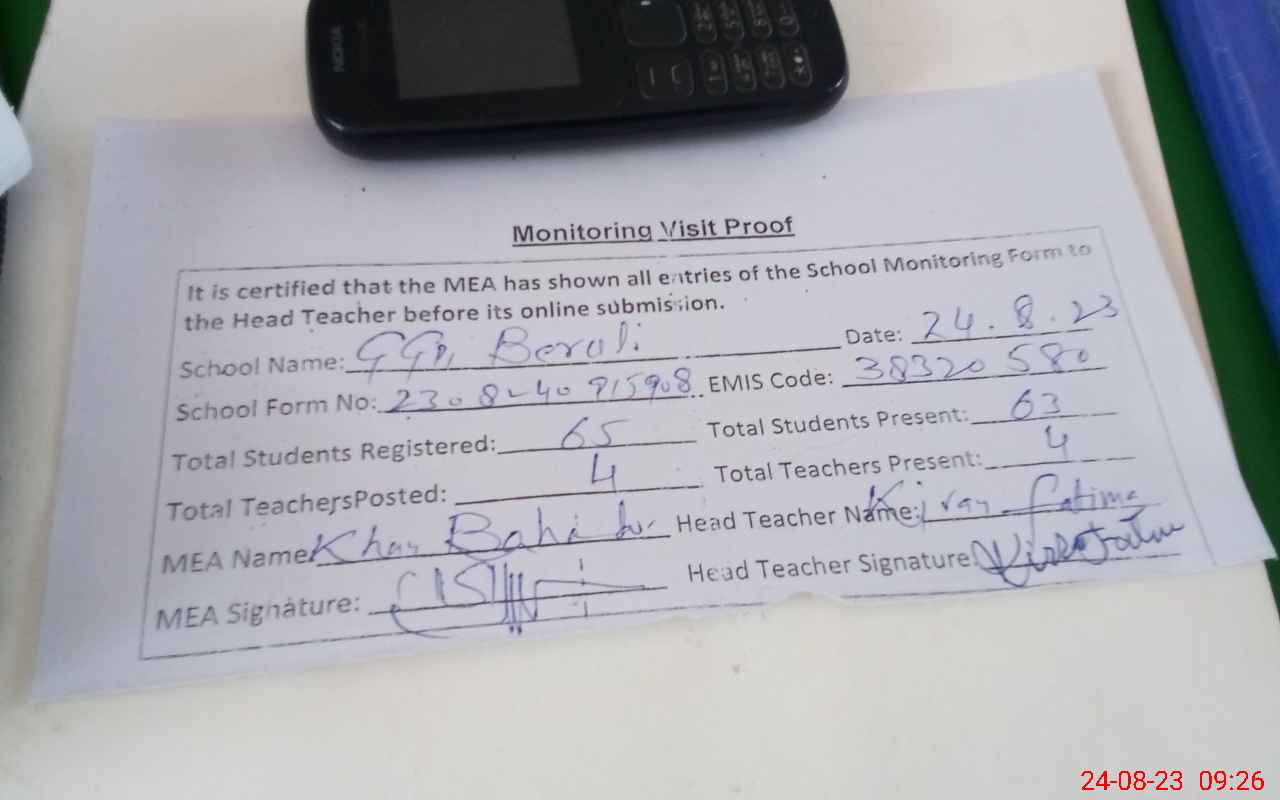 NOKIA
Monitoring Visit Proof
It is certified that the MEA has shown all entries of the School Monitoring Form to
the Head Teacher before its online submission.
School Name: GGPS Berali Date: 24.8.23
School Form No: 2308240915908 EMIS Code: 38320580
Total Students Registered: 65 Total Students Present: 63
Total TeachersPosted: 4 Total Teachers Present: 4
MEA Name: Khan Bahadur Head Teacher Name: Kiran Fatima
MEA Signature: Head Teacher Signature: Kiran Fatima
24-08-23 09:26